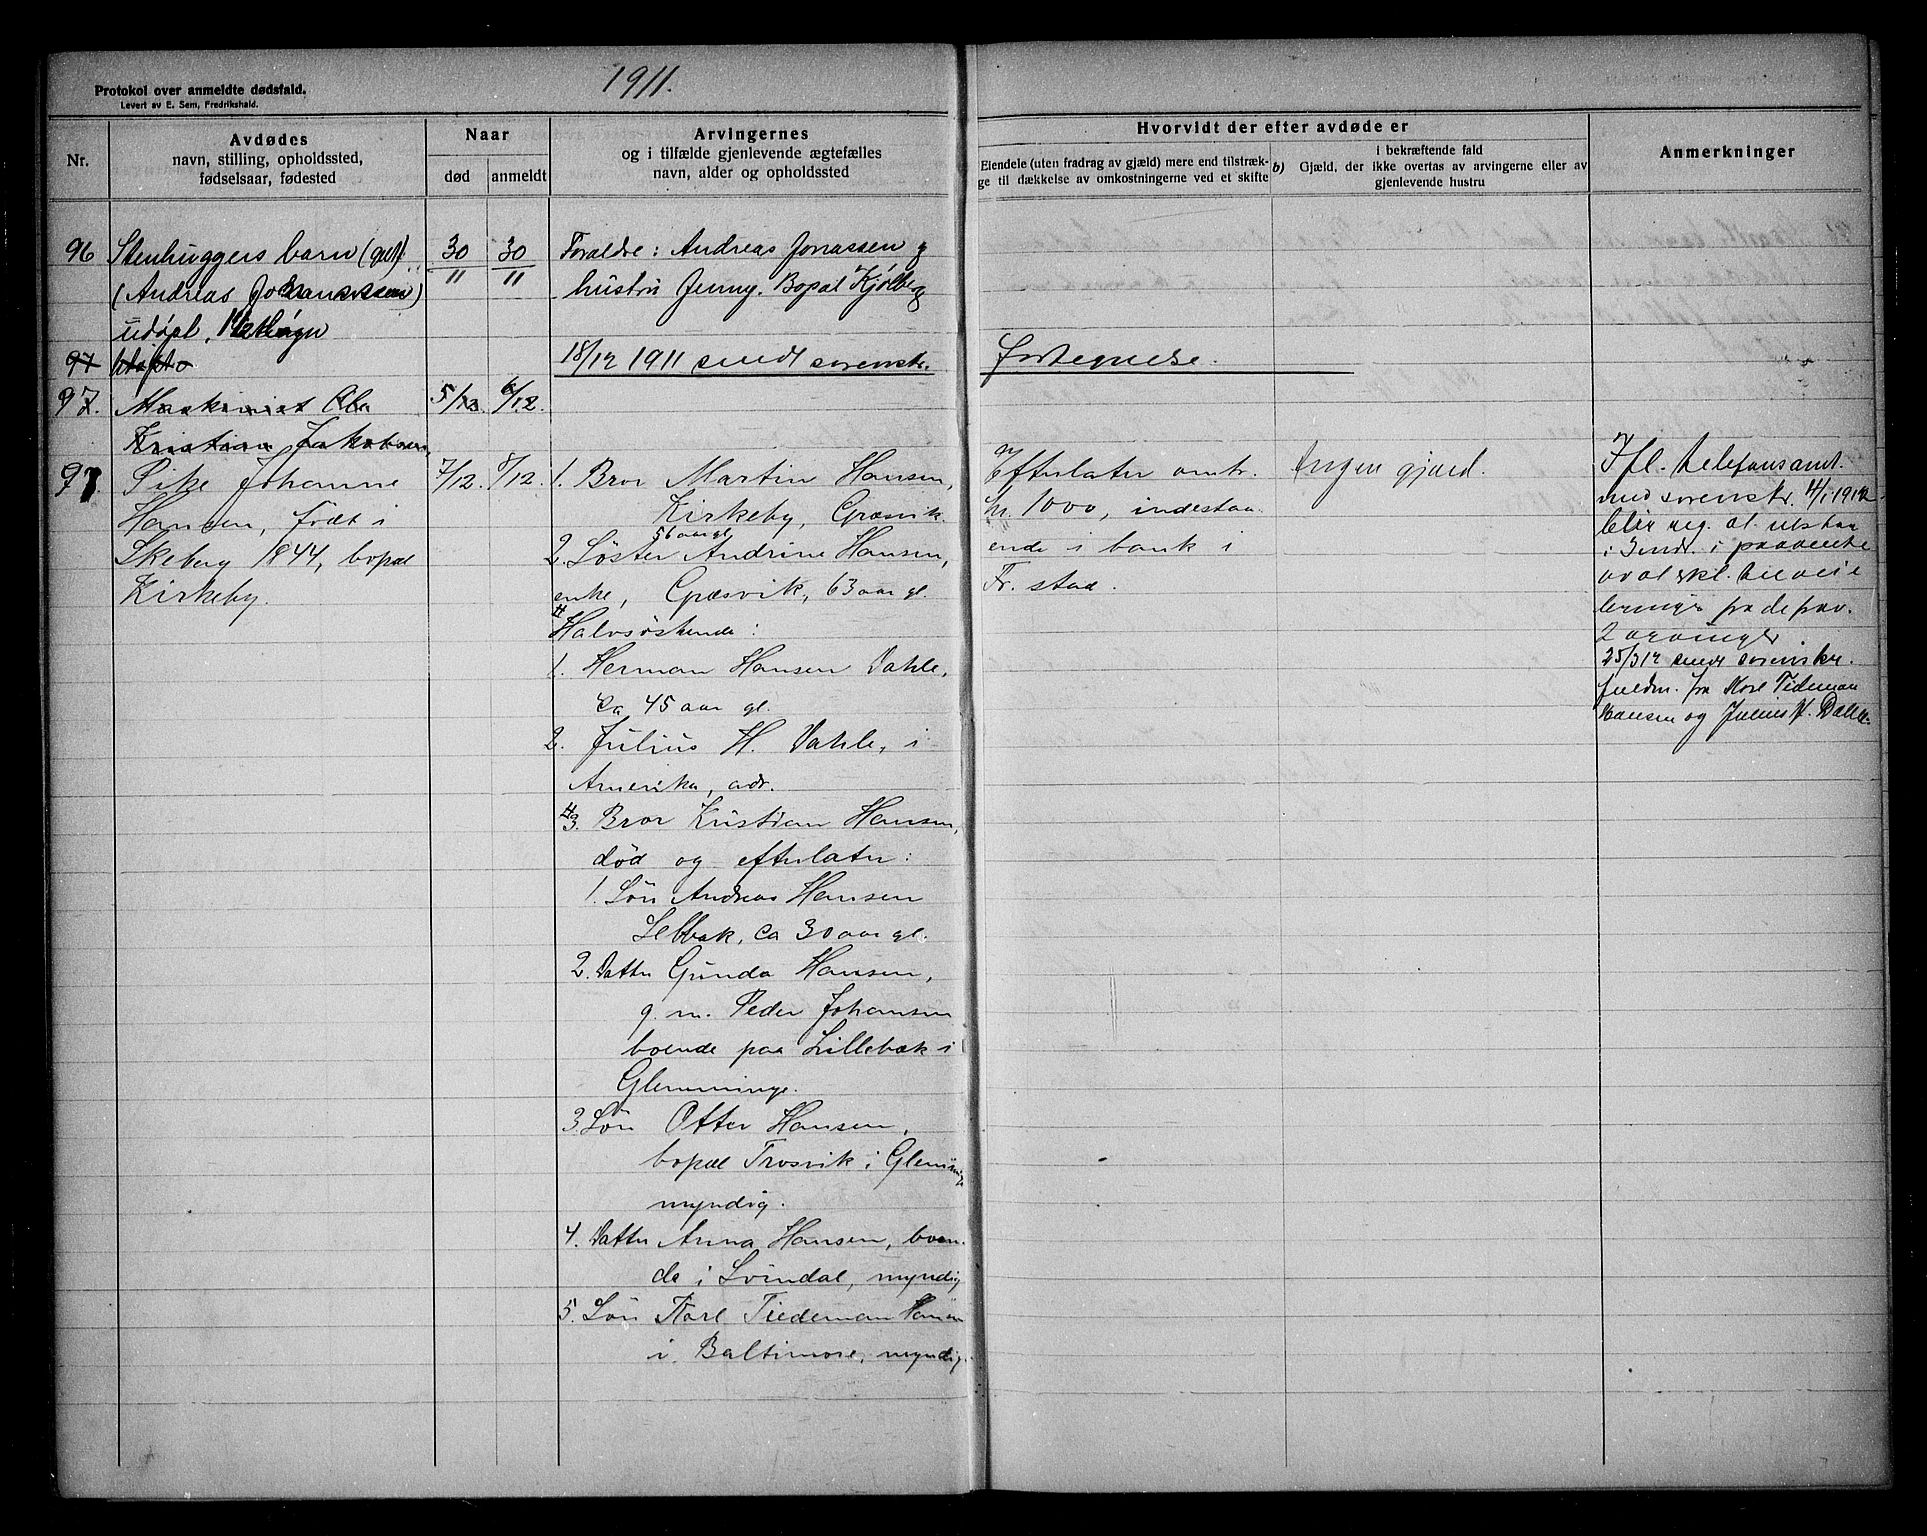 1911.
Protokol over anmeldte dødsfald.
Levert av E. Sem, Fredrikshald.
Nr.
Avdødes
navn, stilling, opholdssted,
fødselsaar, fødested
Naar
død
anmeldt
Arvingernes
og i tilfælde gjenlevende ægtefælles
navn, alder og opholdssted
Hvorvidt der efter avdøde er
Eiendele (uten fradrag av gjæld) mere end tilstræk-
ge til dækkelse av omkostningerne ved et skifte
b)
i bekræftende fald
Gjæld, der ikke overtas av arvingerne eller av
gjenlevende hustru
Anmerkninger
96
Stenhuggers barn
(Andreas
udøpt,
30/11
30/11
Foraldre: Andreas Jonassen og
hustru Jenny. Bopæl Kjølberg
97
18/12 1911 sendt sorenskr.
fortegnelse.
97.
Maskinist Ole
Kristian Jakobsen,
5/12
6/12.
97.
Pike Johanne
Hansen, født i
Skeberg 1844, bopæl
Kirkeby.
7/12.
8/12.
1. Bror Martin Hansen,
Kirkeby, Græsvik.
56 aar gl.
2. Søster Andrine Hansen,
enke, Græsvik, 63 aar gl.
Halvsøskende:
1. Herman Hansen Dahle,
ca 45 aar gl.
2. Julius H. Dahle, i
Amerika, adr.
3. Bror Kristian Hansen,
død og efterlater:
1. Søn Andreas Hansen
Selbak, ca 30 aar gl.
2. Datter Gunda Hansen,
g. m. Peder Johansen
boende paa Lillebæk i
Glemminge.
3. Søn Otter Hansen,
bopæl Trosvik i Glemminge
myndig.
4. Datter Anna Hansen, boen-
de i Svindal, myndig
5. Søn Karl Tiedeman Hansen
i Baltimore, myndig.
Efterlater omtr.
kr. 1000, indestaa-
ende i bank i
Fr. stad.
Ingen gjæld.
Ifl. telefonsamt.
med sorenskr. 4/1 1912
blir reg. at utstaa
i 3 mdr. i paavente
av at skl. tilveie
bringer fra de frav.
2 arvinger
25/3 12 sendt sorenskr.
fuldm. fra Karl Tideman
Hansen og Julius H. Dahle.